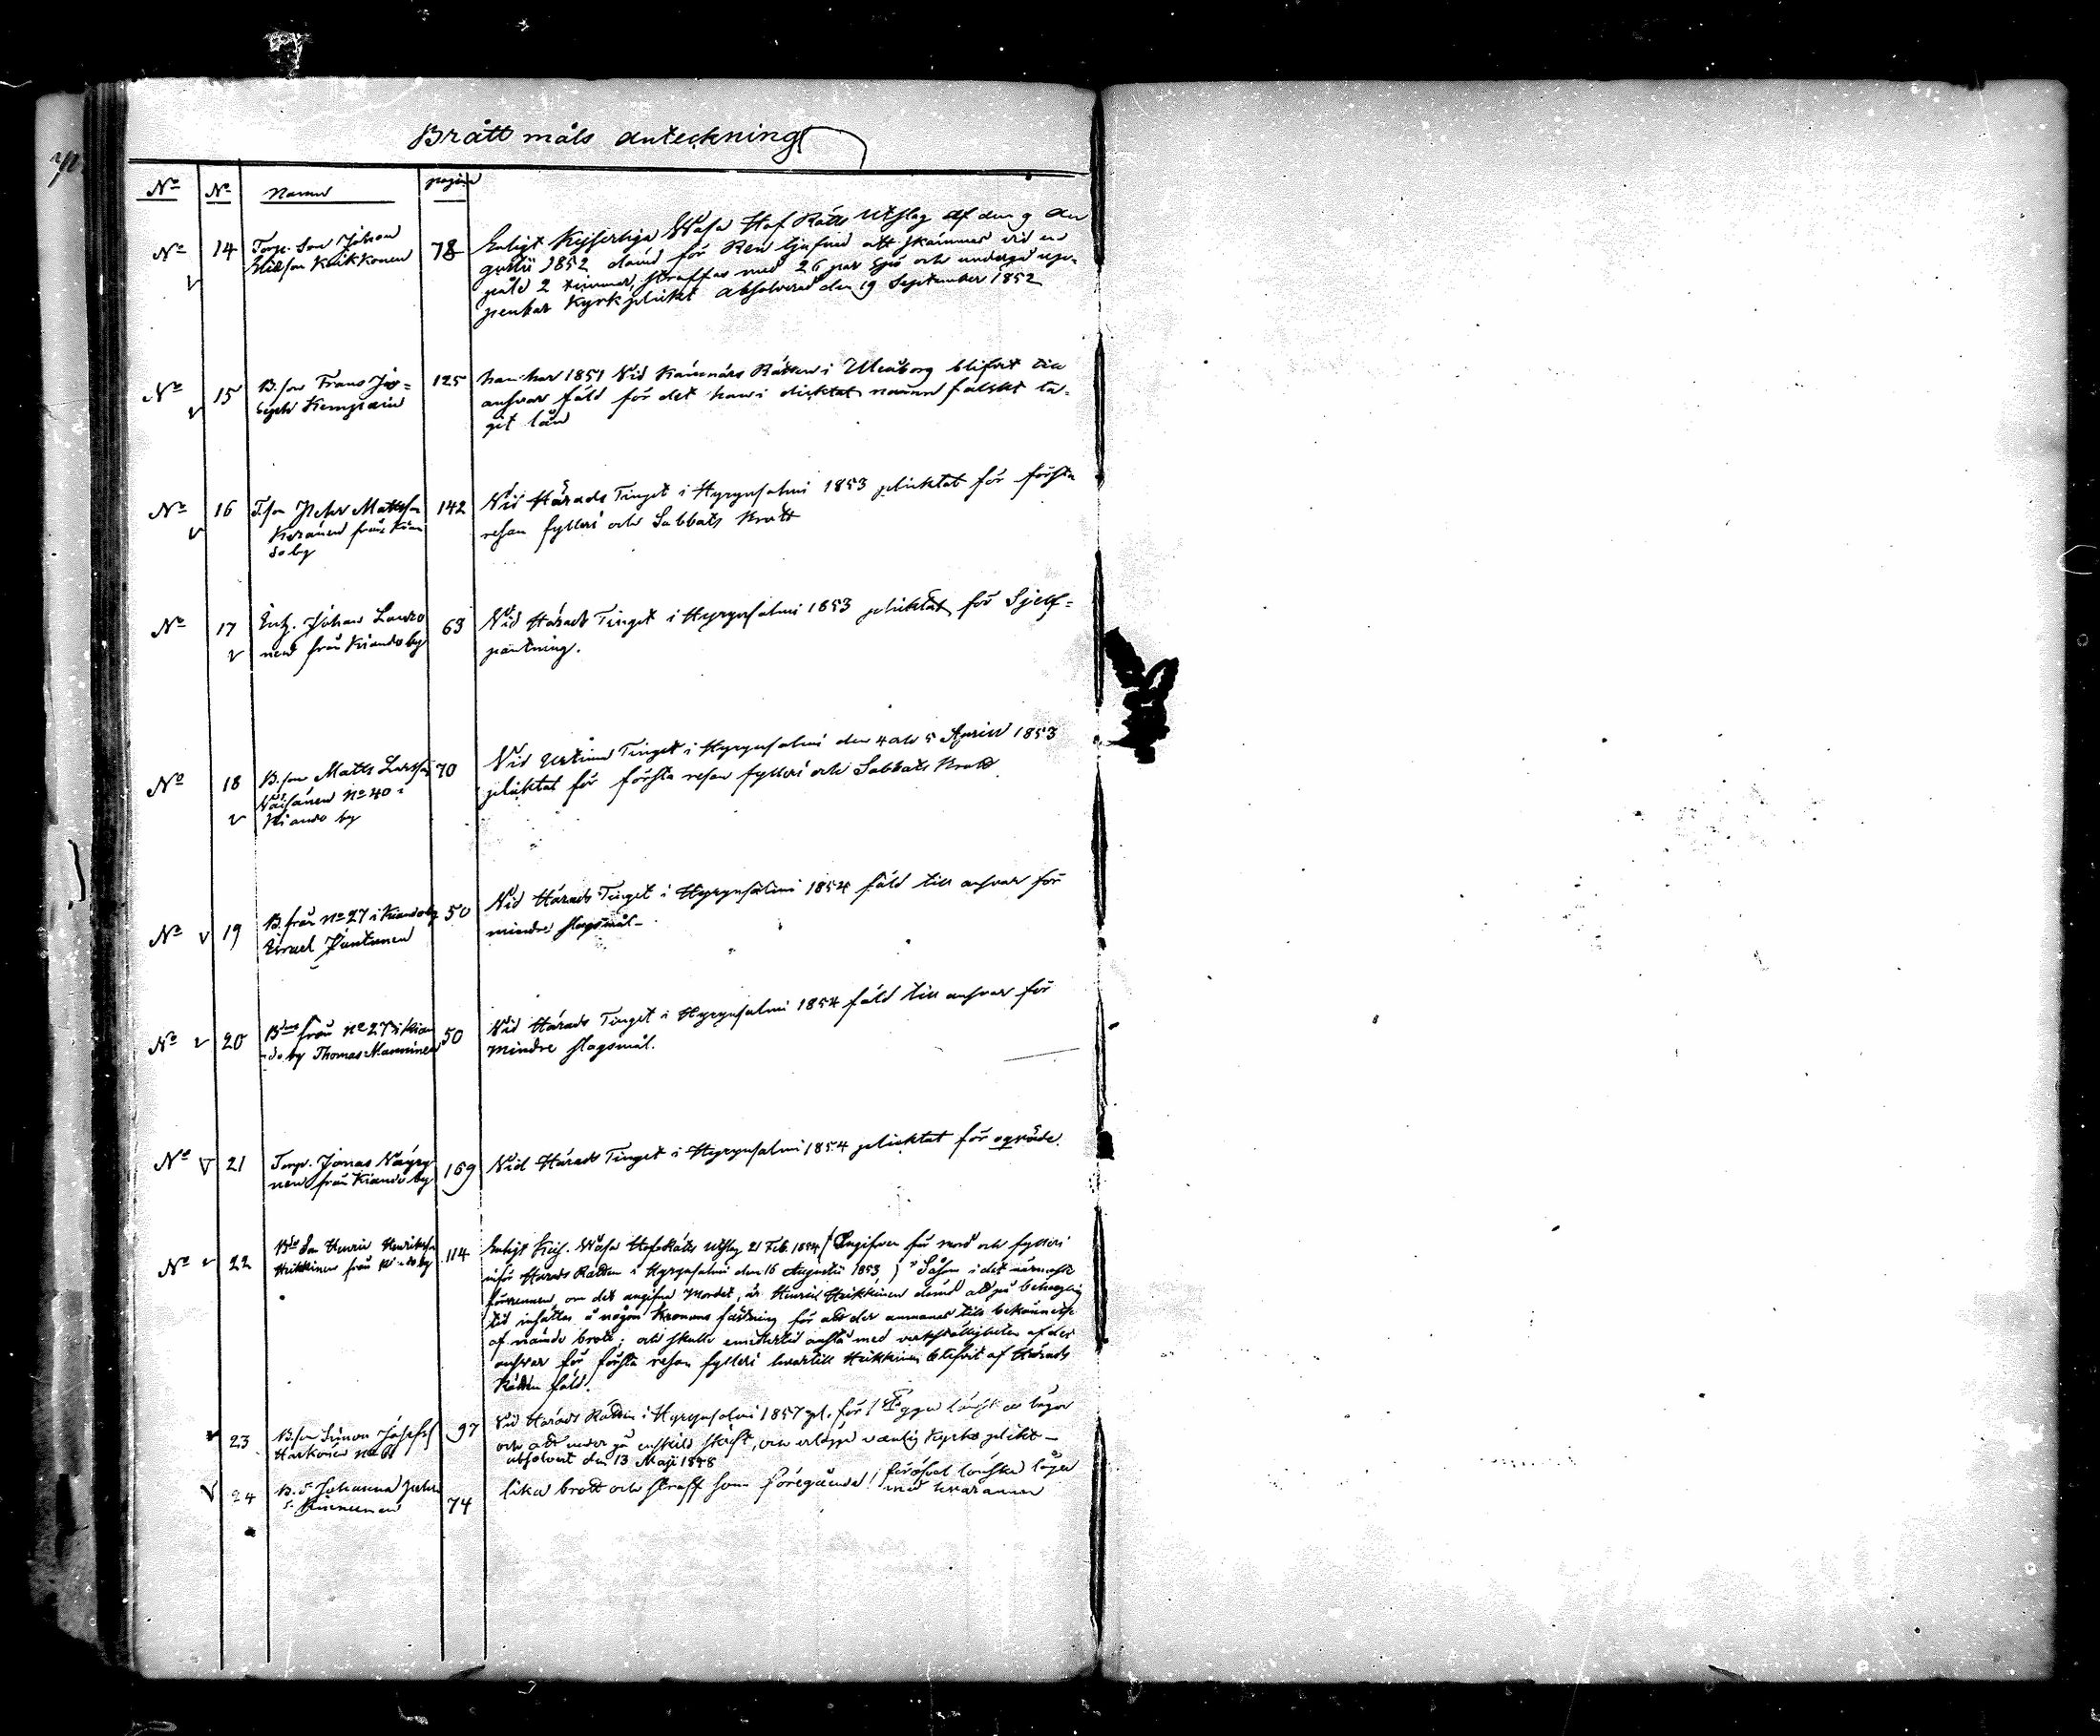 Brått måls anteckning
No No Namn pagina
No 14 Torp. Son Johan 78 Enligt Kejserliga Wasa Hof Rätts Utslag af den 9 Au
Keikkonen gustii 1852 dömd för Ren tjufnad att skämmas vid en
påle 2 timmar, straffas med 26 par spö och undergå uppenbar
Kyrkplikt absolverad den 19 September 1852
No 15 B.son Frans Jo= 125 han har 1851 Vid Kämnärs Rätten i Uleåborg blifvit till
seph Kempain ansvar fäld för det han i diktat namn falskt ta=
git lån
No 16 T.son Petter Mattsson 142 Vid Härads Tinget i Hyrynsalmi 1853 pliktat för första
Keränen från Kian resan fylleri och Sabbats brott
do by
No 17 Inh. Johan 63 Vid Härads Tinget i Hyrynsalmi 1853 pliktat för Sjelf=
nen från Kiando by pantning.
No 18 B.son Matts Larsson 70 Vid Urtima Tinget i Hyrynsalmi den 4 och 5 April 1853
Väisänen No 40 i pliktat för första resan fylleri och Sabbats brott
Kiando by
No 19 B. från No 27 i Kiando by 50 Vid Härads Tinget i Hyrynsalmi 1854 fäld till ansvar för
Israel Juntunen mindre slagsmål
No 20 från No 27 i Kian 50 Vid Härads Tinget i Hyrynsalmi 1854 fäld till ansvar för
do by Thomas Manninen mindre slagsmål.
No 21 Torp. Jonas Väyry 169 Vid Härads Tinget i Hyrynsalmi 1854 pliktat för oqväde.
nen från Kiando by
No 22 Son Henric Henriksson 114 Enligt Kejs. Wasa Hof Rätts Utslag 21 Feb. 1854 (Angifven för mord och fylleri
Heikkinen från Kiando by inför Härads Rätten i Hyrynsalmi den 16 Augustii 1853) Såsom i det närmaste
om det angifna Mordet, är Henric Heikkinen dömd att på behaglig
tid inhållas å någon Kronans fästning för att der anmanas till bekännelse
af nämde brott; och skulle emedlertid anstå med verkställigheten af det
ansvar för första resan fylleri hvartill Heikkinen blifvit af Härads
Rätten fäld.
23 B.son Simon Josefs 97 Vid Härads Rätten i Hyrynsalmi 1857 pl. för läger
Härkönen och att undergå enskild skrift, och vanlig Kyrko plikt
absolvert den 13 Maji 1858
24 B. D. Johanna 74 lika brott och straff som föregående! lönska läger
Kinnunen med hvarannan